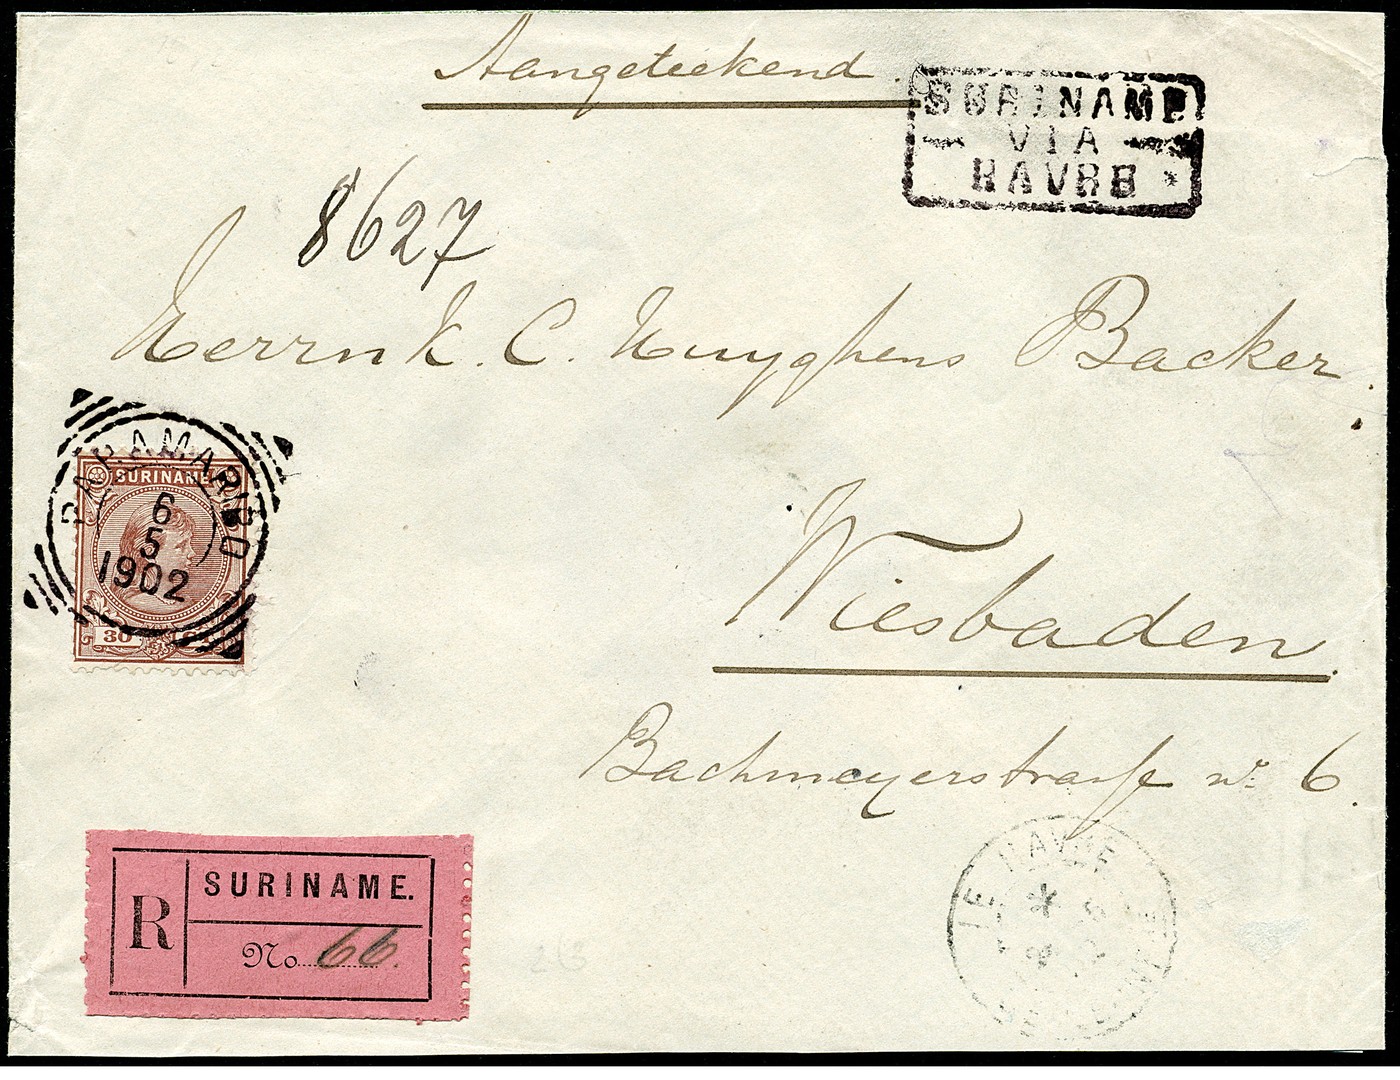 Aangeteekend
SURINAME
VIA
HAVRE *
8627
Herrn K. C. Kuyghens Backer.
PARAMARIBO
6
5
1902
SURINAME
30 CT
Wiesbaden.
Bachmeyerstrasse No 6.
R
SURINAME.
No 66.
LE HAVRE